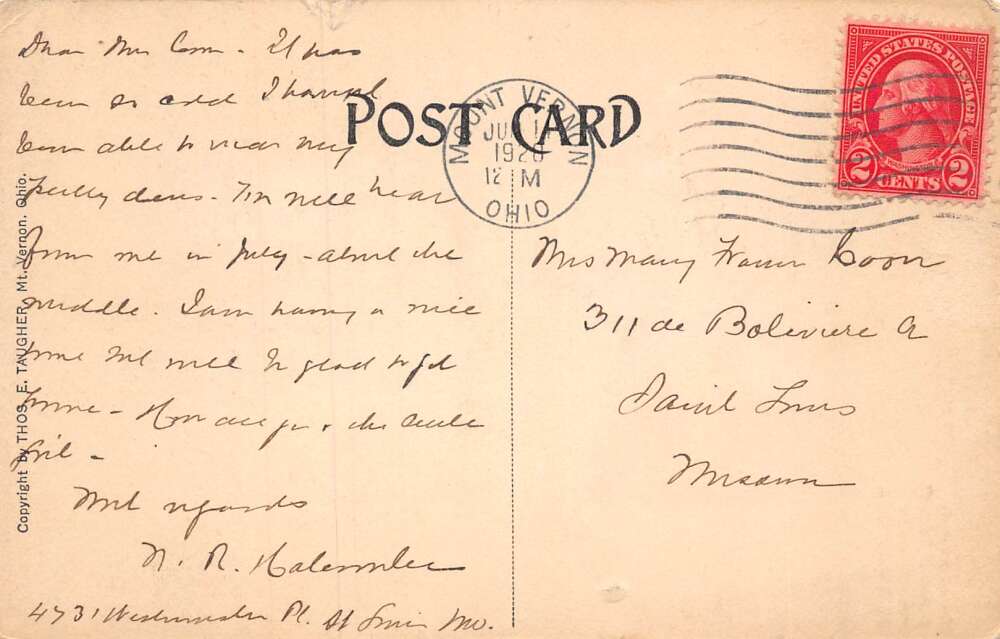 Dear Mrs Coon - It has
been so cold I havent
been able to wear my
pretty dress. You will hear
from me in July - about the
middle. I am having a nice
time but will be glad to get
home - How are you & the little
girl -
With regards
N. R. Halcomber
4731 Westminster Pl. St Louis Mo.
POST CARD
MOUNT VERNON
JUL 1
12 M
OHIO
UNITED STATES POSTAGE
WASHINGTON
2 CENTS 2
Mrs Mary Coon
311 de Boliviere A
Saint Louis
Missouri
Copyright by THOS. E. TAUGHER, Mt. Vernon. Ohio.